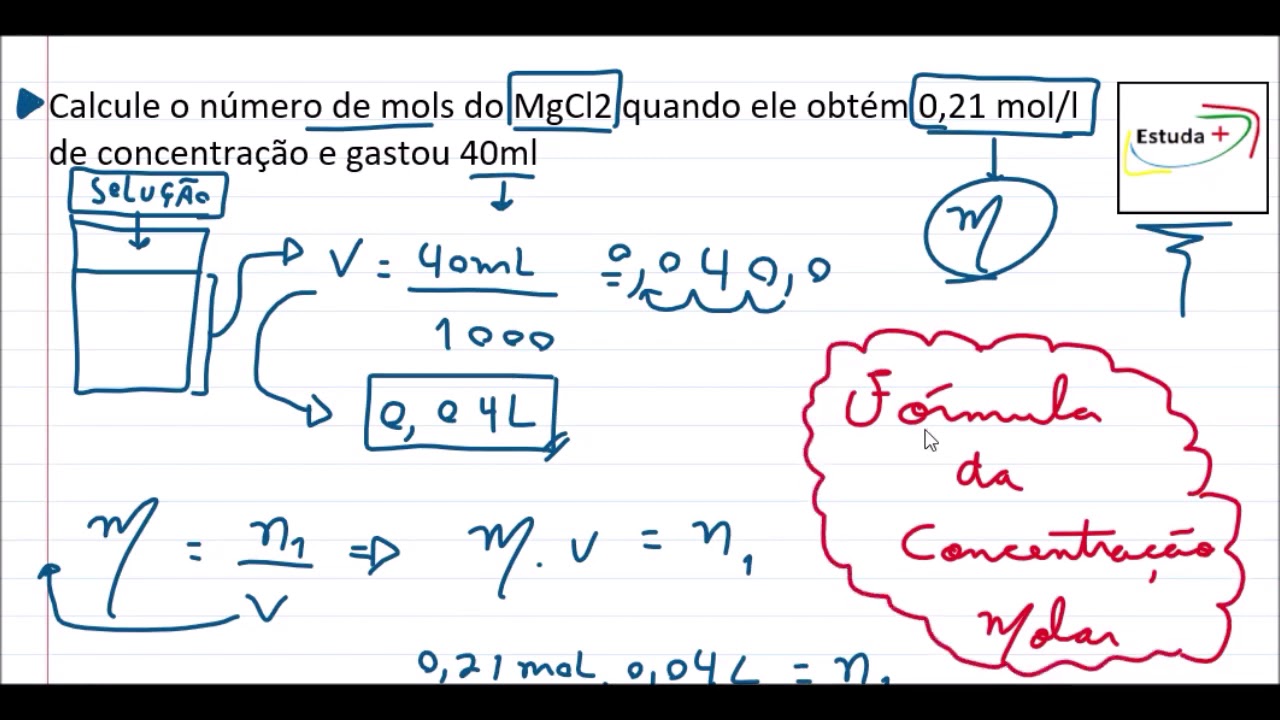 Calcule o número de mols do MgCl2 quando ele obtém 0,21 mol/l
de concentração e gastou 40ml
Estuda +
SOLUÇÃO
V = 40mL
1000
0,040,0
0,04L
M
Fórmula
da
Concentração
Molar
M = n1
V
M . V = n1
0,21 mol . 0,04L = n1